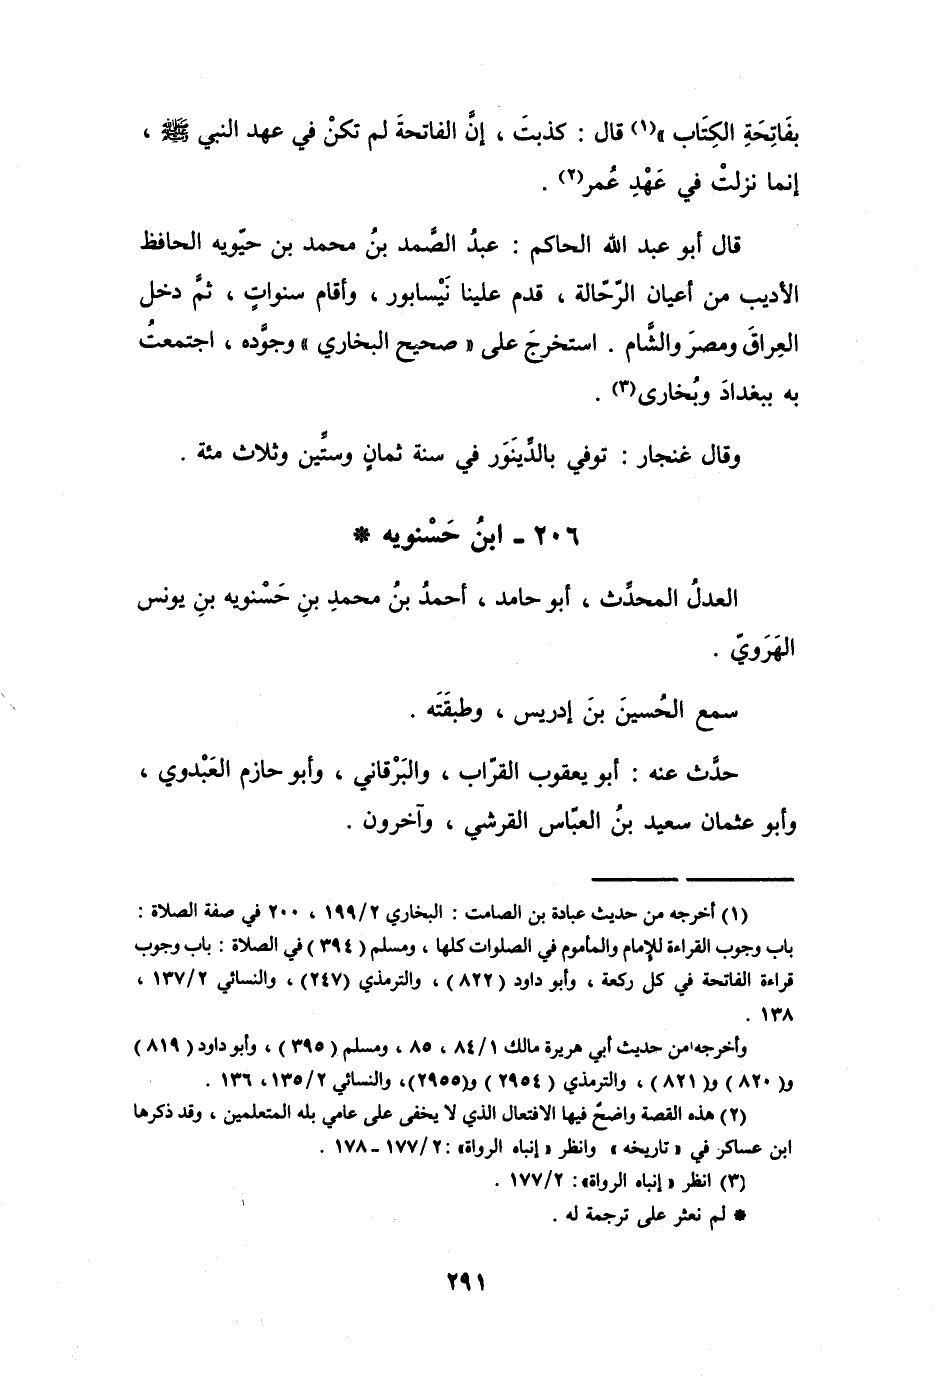 بفَاتِحَةِ الكِتَاب »(١) قال : كذبتَ ، إنَّ الفاتحةَ لم تكنْ في عهد النبي ﷺ ،
إنما نزلتْ في عَهْدِ عُمر(٢) .
قال أبو عبد الله الحاكم : عبدُ الصَّمد بنُ محمد بن حيّويه الحافظ
الأديب من أعيان الرّحّالة ، قدم علينا نَيْسابور ، وأقام سنواتٍ ، ثمَّ دخل
العِراقَ ومصرَ والشَّام . استخرجَ على « صحيح البخاري » وجوَّده ، اجتمعتُ
به ببغدادَ وبُخارى(٣) .
وقال غنجار : توفي بالدِّينَوَر في سنة ثمانٍ وستِّين وثلاث مئة .
٢٠٦ - ابنُ حَسْنويه *
العدلُ المحدَّث ، أبو حامد ، أحمدُ بنُ محمدِ بنِ حَسْنويه بنِ يونس
الهَرَويّ .
سمع الحُسينَ بنَ إدريس ، وطبقَتَه .
حدَّث عنه : أبو يعقوب القرّاب ، والبَرْقاني ، وأبو حازم العَبْدوي ،
وأبو عثمان سعيد بنُ العبّاس القرشي ، وآخرون .
(١) أخرجه من حديث عبادة بن الصامت : البخاري ١٩٩/٢ ، ٢٠٠ في صفة الصلاة :
باب وجوب القراءة للإمام والمأموم في الصلوات كلها ، ومسلم ( ٣٩٤ ) في الصلاة : باب وجوب
قراءة الفاتحة في كل ركعة ، وأبو داود ( ٨٢٢ ) ، والترمذي (٢٤٧) ، والنسائي ١٣٧/٢ ،
١٣٨ .
وأخرجه من حديث أبي هريرة مالك ٨٤/١ ، ٨٥ ، ومسلم ( ٣٩٥ ) ، وأبو داود ( ٨١٩ )
و( ٨٢٠ ) و( ٨٢١ ) ، والترمذي ( ٢٩٥٤ ) و(٢٩٥٥)، والنسائي ١٣٥/٢، ١٣٦ .
(٢) هذه القصة واضحٌ فيها الافتعال الذي لا يخفى على عامي بله المتعلمين ، وقد ذكرها
ابن عساكر في « تاريخه » وانظر « إنباه الرواة» : ١٧٧/٢ ـ ١٧٨ .
(٣) انظر « إنباه الرواة»: ١٧٧/٢ .
* لم نعثر على ترجمة له .
٢٩١